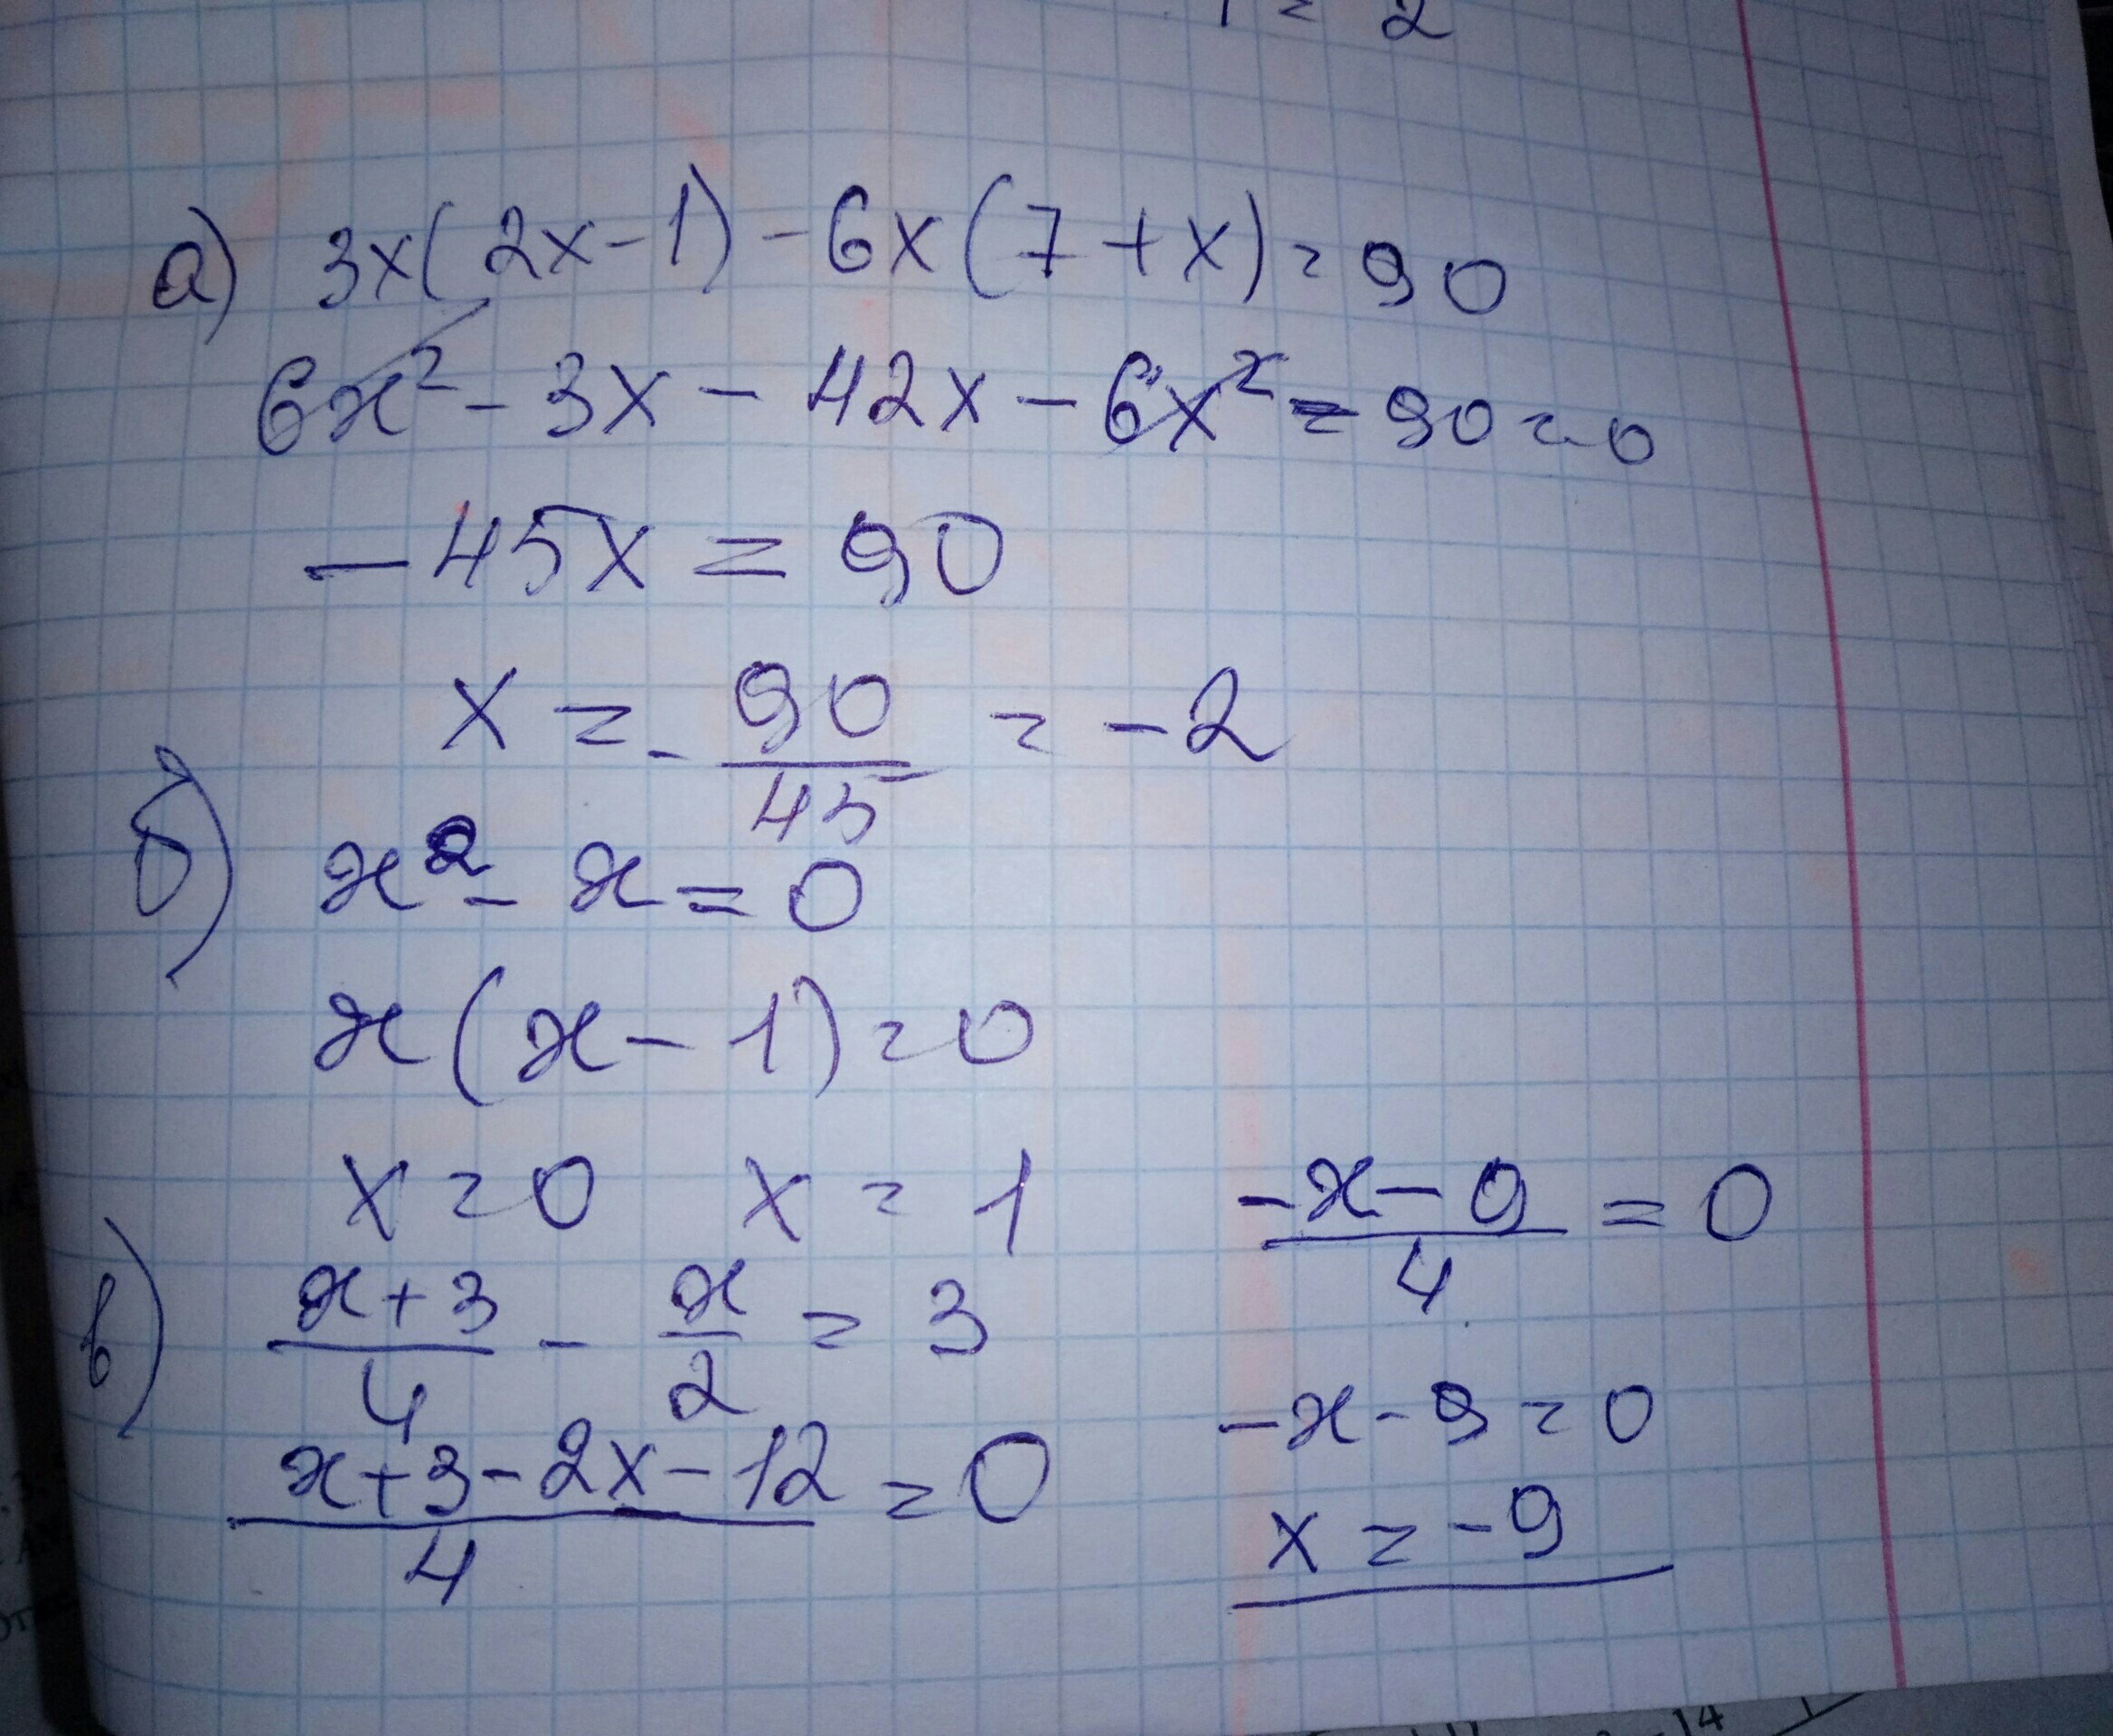 а) 3x(2x-1) - 6x(7+x) = 90
6x² - 3x - 42x - 6x² = 90 = 0
- 45x = 90
x = - 90/45 = -2
б) x² - x = 0
x(x-1) = 0
x = 0 x = 1
в) (x+3)/4 - x/2 = 3
(x+3-2x-12)/4 = 0
(-x-9)/4 = 0
-x-9 = 0
x = -9
-14